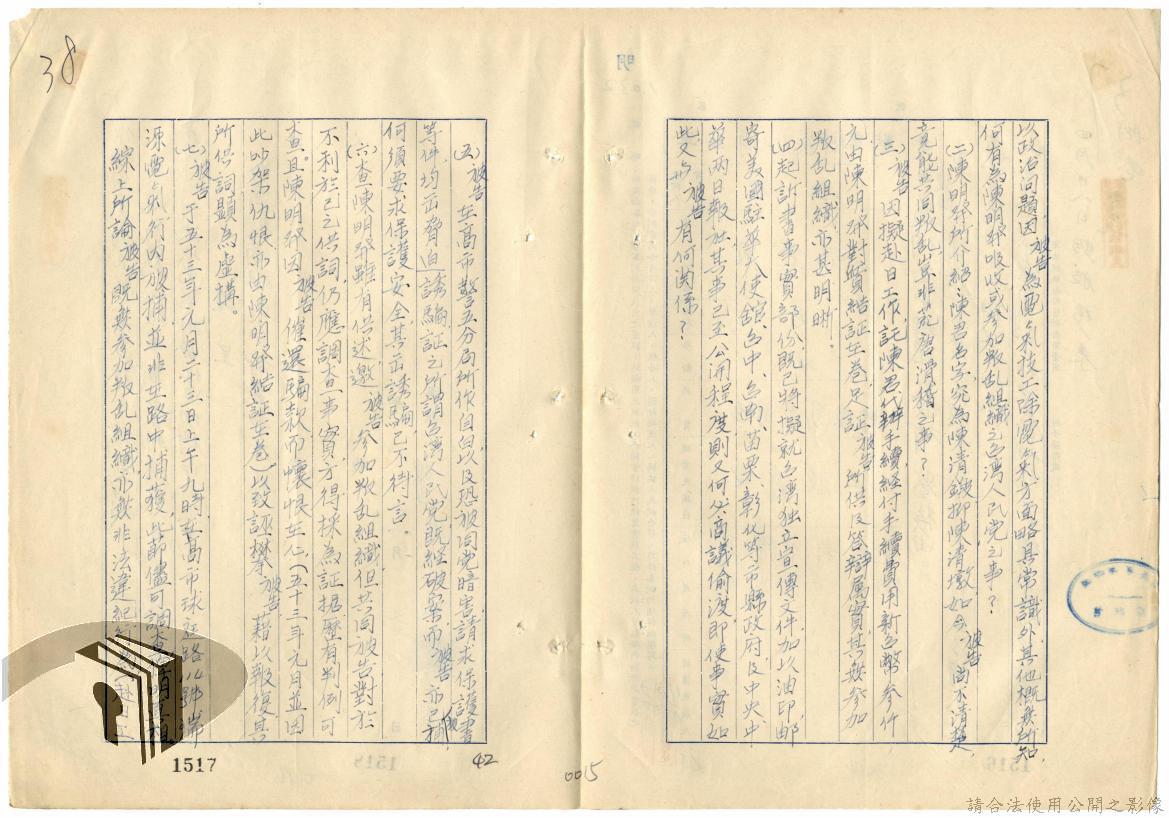 38
明
以政治问題,因被告為電氣技工除電氣方面略具常識外,其他概無所知,
何有為陳明發吸收或参加叛乱組織之台湾人民党之事?
(二)陳明發所介紹:陳君名字究為陳清鐵抑陳清墩如今被告尚不清楚,
竟能共同叛乱豈非荒唐滑稽之事?
(三)被告因擬赴日工作託陳君代辦手續經付手續費用新台幣参仟
元由陳明發對質結証在卷足証被告所供及答辯属實其無参加
叛乱組織亦甚明晰.
(四)起訴書事實部份既已將擬就台湾独立宣傳文件加以油印郵
寄美國駐華大使館,台中,台南,苗栗,彰化等市縣政府及中央中
華两日報社其事已至公開程度則又何必商議偷渡,即使事實如
此又與被告有何関係?
(五)被告在高市警五分局所作自白以及恐被同党暗害,請求保護書
等件,均出脅迫誘騙証之所謂台湾人民党既經破案而被告亦已補
何須要求保護安全其出誘騙已不待言.
(六)查陳明發雖有供述邀被告参加叛乱組織但共同被告對於
不利於己之供詞,仍應調查事實方得採為証据歷有判例可
查。且陳明發因被告催還騙款而懷恨在心(五十三年元月並因
此吵架仇恨亦由陳明發結証在卷)以致誣攀被告藉以報復其
所供詞顯為虚構。
(七)被告于五十三年元月二十三日上午九時在高市球庭路八號端
源電氣行内被捕,並非在路中捕獲,此節儘可調查
綜上所論被告既無参加叛乱組織亦無非法違紀
1517
42
0015
請合法使用公開之影像